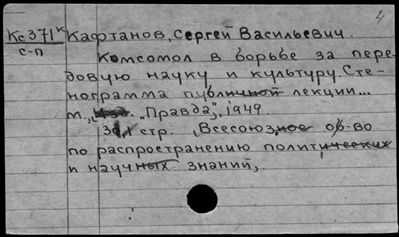 4
Кс371к Кафтанов, Сергей Васильевич.
с-п
Комсомол в борьбе за пере-
довую науку и культуру. Сте-
нограмма публичной лекции...
м., "Правда", 1949.
стр. Всесоюзное об-во
по распространению политических
и научных знаний,